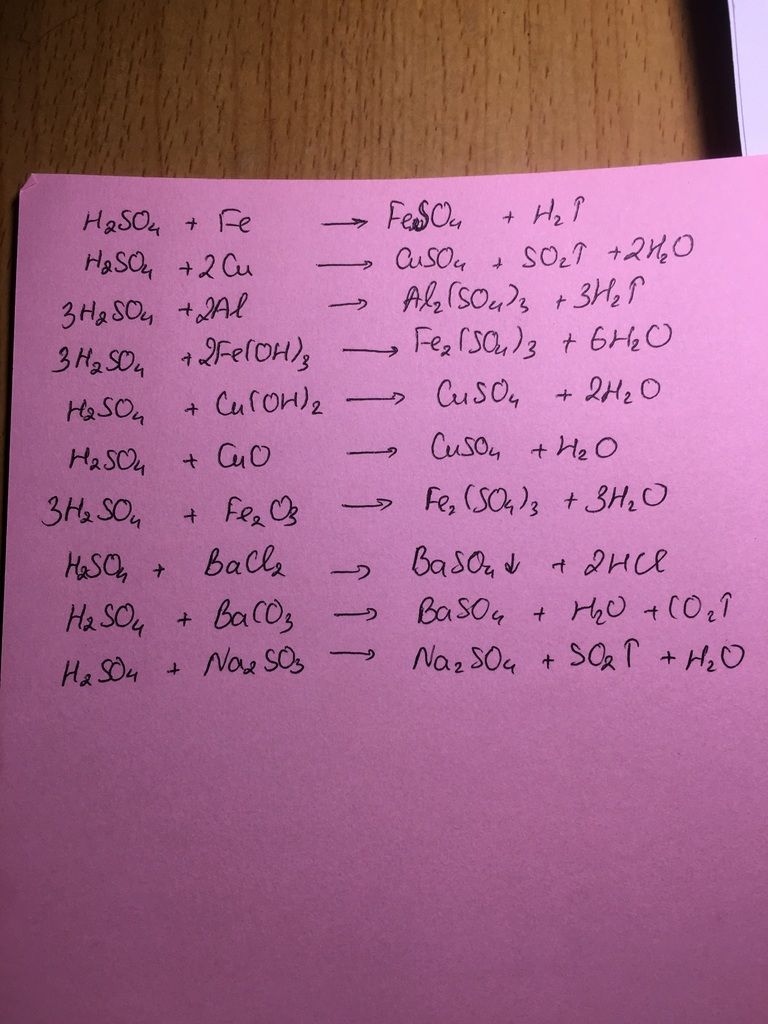 H₂SO₄ + Fe → FeSO₄ + H₂↑
H₂SO₄ + 2Cu → CuSO₄ + SO₂↑ + 2H₂O
3H₂SO₄ + 2Al → Al₂(SO₄)₃ + 3H₂↑
3H₂SO₄ + 2Fe(OH)₃ → Fe₂(SO₄)₃ + 6H₂O
H₂SO₄ + Cu(OH)₂ → CuSO₄ + 2H₂O
H₂SO₄ + CuO → CuSO₄ + H₂O
3H₂SO₄ + Fe₂O₃ → Fe₂(SO₄)₃ + 3H₂O
H₂SO₄ + BaCl₂ → BaSO₄↓ + 2HCl
H₂SO₄ + BaCO₃ → BaSO₄ + H₂O + CO₂↑
H₂SO₄ + Na₂SO₃ → Na₂SO₄ + SO₂↑ + H₂O